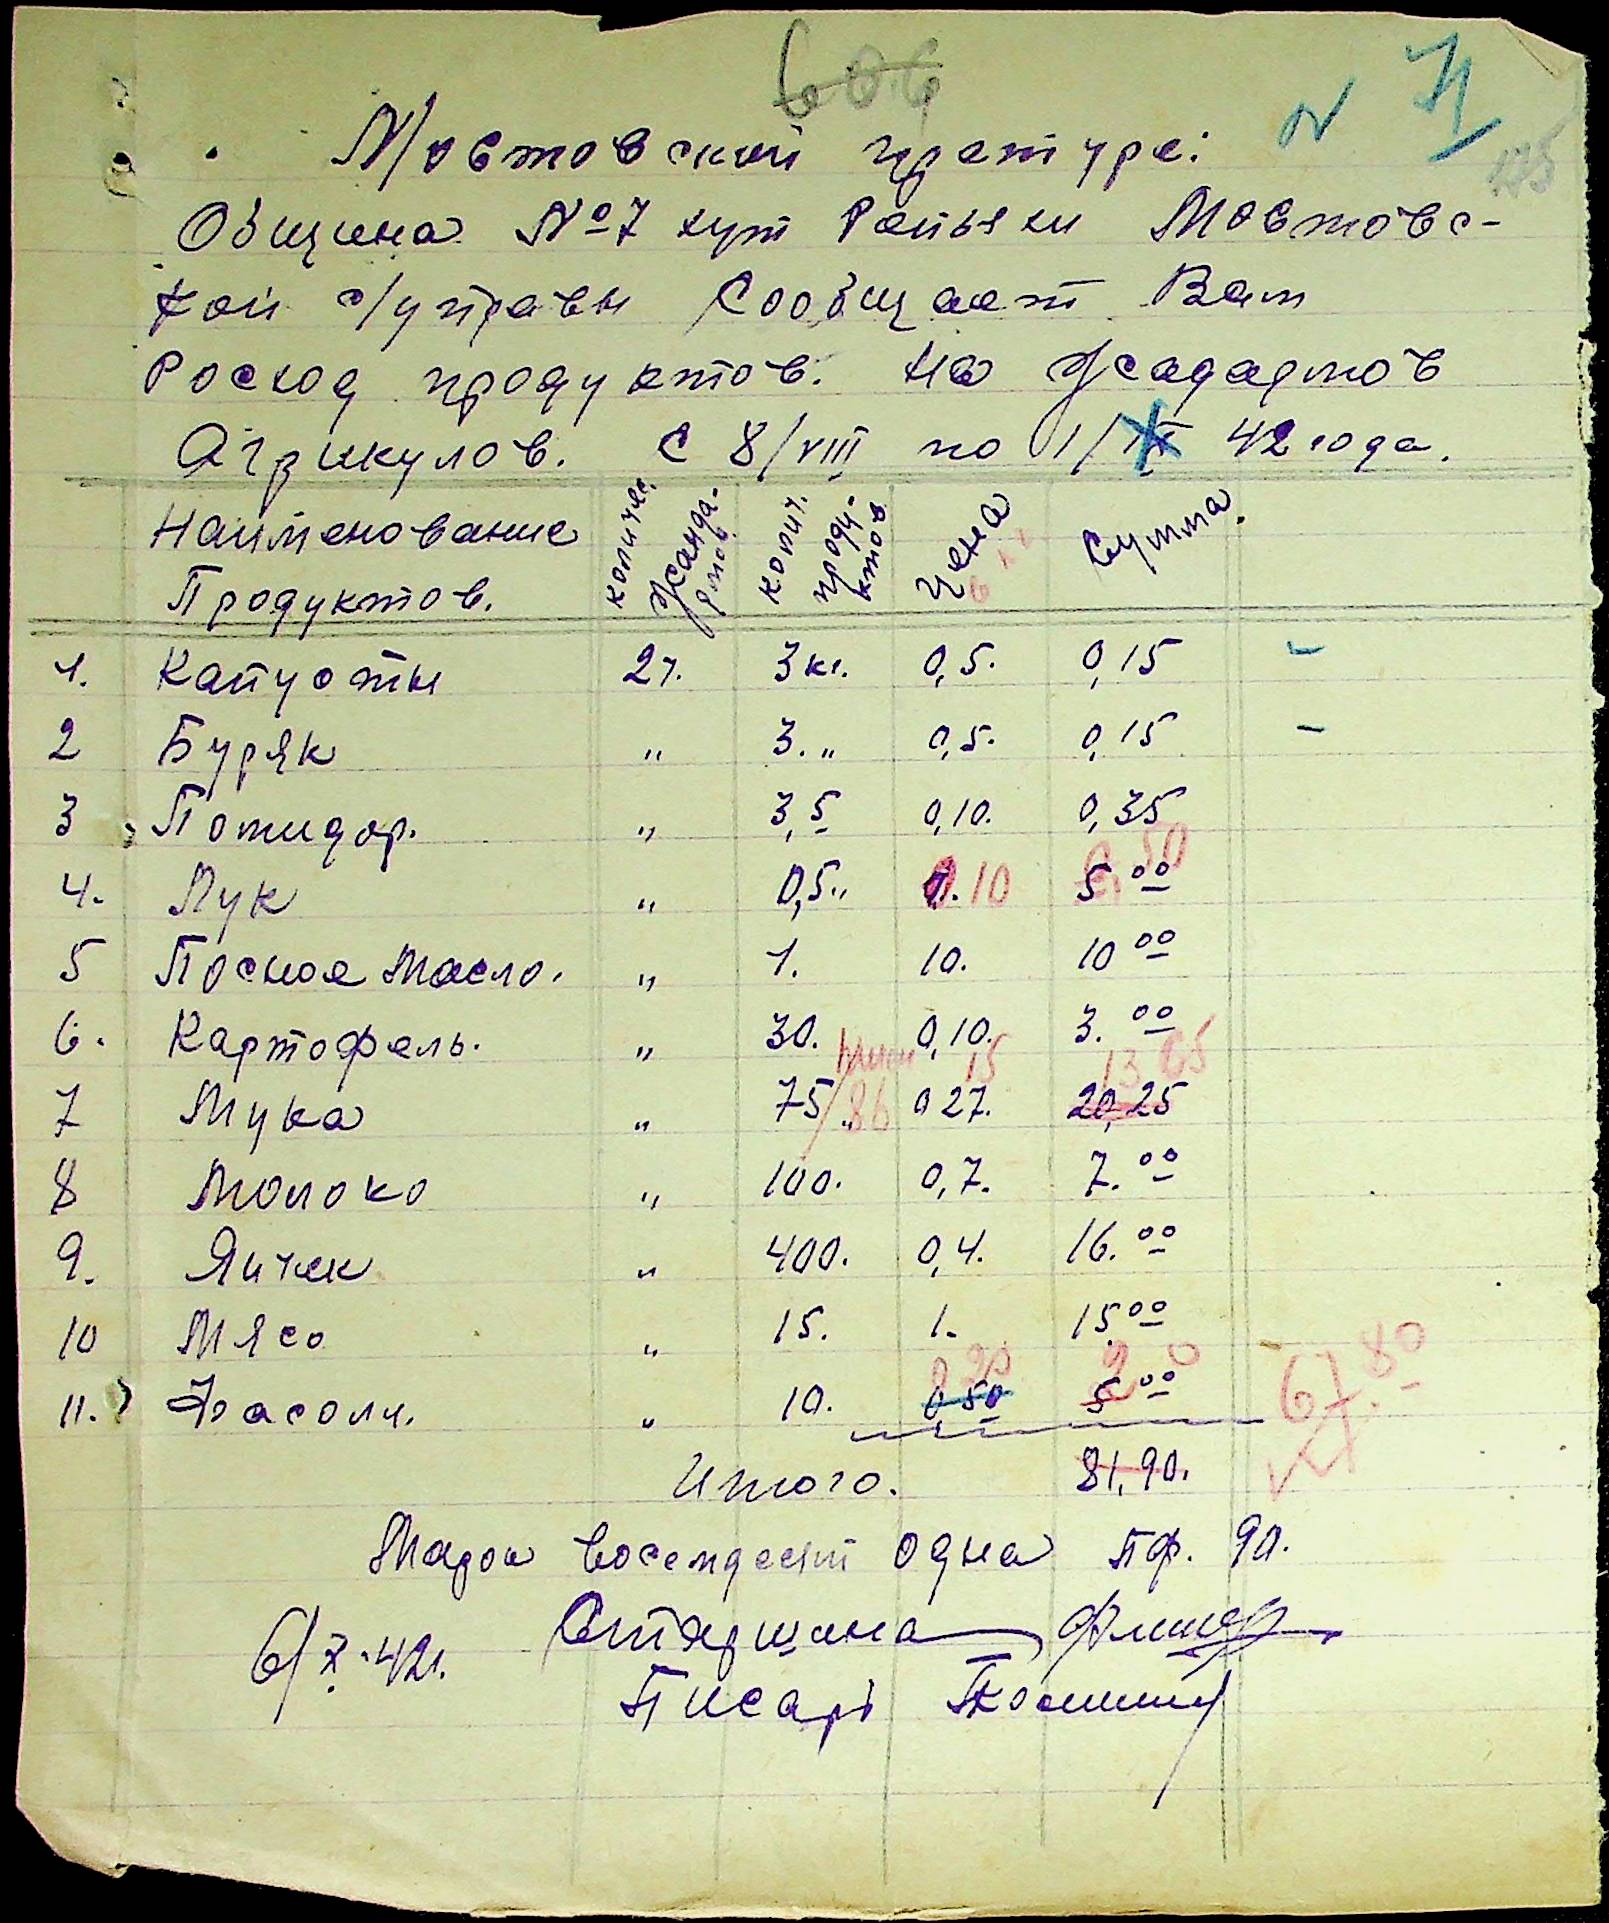 606
№ 71
175
Мостовской претуре:
Община №7 хут Ротьяки Мостовс-
кой с/управы Сообщает Вам
Росход продуктов. на Жадармов
Агрикулов. С 8/VIII по 1/X 42 года.
Наименование Продуктов. количес. жандармов колич. продуктов Цена Сумма.
1. Капусты 2ч. 3кг. 0,5. 0,15 -
2 Буряк " 3. " 0,5. 0,15 -
3 Помидор. " 3,5 0,10. 0,35
4. Лук " 0,5 " 0.10 5.00 0,50
5 Посное Масло. " 1. 10. 10 00
6. Картофель. " 30. 0,10. 3. 00
15 13 65
7 Мука " 75 " 86 0 27. 20,25
8 Молоко " 100. 0,7. 7. 00
9. Яичек " 400. 0,4. 16. 00
10 Мясо " 15. 1. 15 00
11. Фасоли. " 10. 0,50 5 00
67.80
Итого. 81,90.
Марок восемдесят одна пф. 90.
6/X.42г. Старшина
Писарь